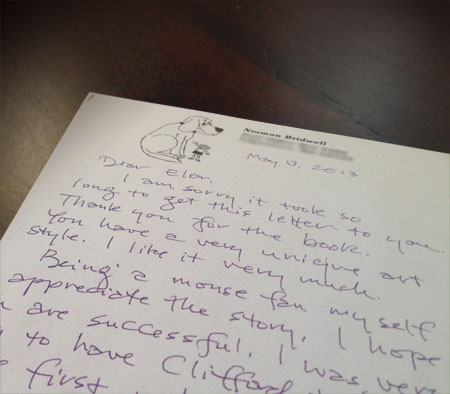 Norman Bridwell
May 13, 2013
Dear Elen,
I am sorry it took so
long to get this letter to you.
Thank you for the book.
You have a very unique art
style. I like it very much.
Being a mouse fan myself
appreciate the story. I hope
are successful. I was very
to have Clifford
first